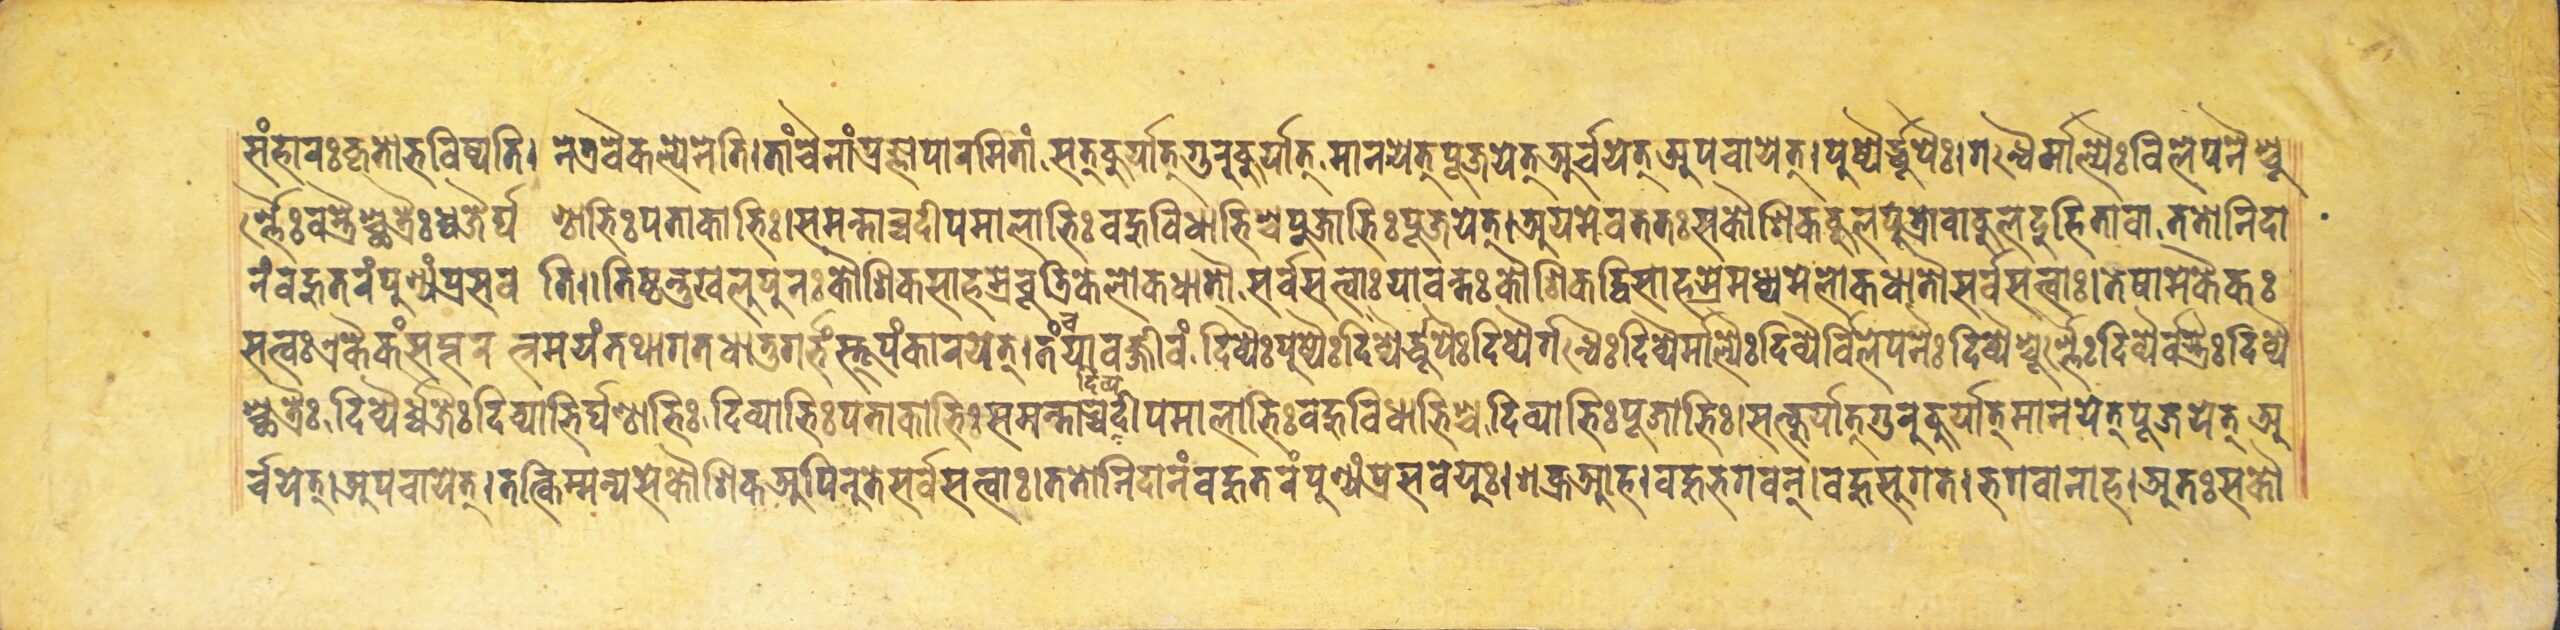 संहारः कृतो भविष्यति। नेत्रवैकल्येनेति। तां चैनां प्रज्ञापारमितां सत्कुर्यात् गुरुकुर्यात् मानयेत् पूजयेत् अर्चयेत् अपचायेत्। पुष्पैर्द्धूपैः। गन्धैर्माल्यैः विलेपनैश्चू
र्ण्णैः वस्त्रैश्छत्रैः ध्वजैर्घ ण्टाभिः पताकाभिः। समन्ताच्च दीपमालाभिः बहुविधाभिश्च पूजाभिः पूजयेत्। अयमेव ततः स कौशिक कुलपुत्रो वा कुलदुहिता वा ततो निदा
नं बहुतरं पुण्यं प्रसव ति॥ तिष्ठन्तु खलु पुनः कौशिक साहस्रे चूडिके लोकधातौ सर्वसत्त्वाः यावन्तः कौशिक द्विसाहस्रे मध्यमे लोकधातौ सर्वसत्त्वाः। तेषामेकैकः
सत्त्वः एकैकं सप्तर त्नमयं तथागतधातुगर्भं स्तूपं कारयेत्। तं च यावज्जीवं दिव्यैः पुष्पैः दिव्यैर्द्धूपैः दिव्यैर्गन्धैः दिव्यैर्माल्यैः दिव्यैर्विलेपनैः दिव्यैश्चूर्ण्णैः दिव्यैर्वस्त्रैः दिव्यै
श्छत्रैः दिव्यैर्ध्वजैः दिव्याभिर्घण्टाभिः दिव्याभिः पताकाभिः समन्ताच्च दिव्य दीपमालाभिः बहुविधाभिश्च दिव्याभिः पूजाभिः। सत्कुर्यात् गुरुकुर्यात् मानयेत् पूजयेत् अ
र्चयेत्। अपचायेत्। तत्किम्मन्यसे कौशिक अपि नु ते सर्वसत्त्वाः। ततो निदानं बहुतरं पुण्यं प्रसवेयुः। शक्र आह। बहु भगवन्। बहु सुगत। भगवानाह। अतः स कौ